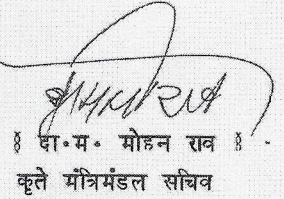 ॥ दा॰म॰ मोहन राव ॥
कृते मंत्रिमंडल सचिव